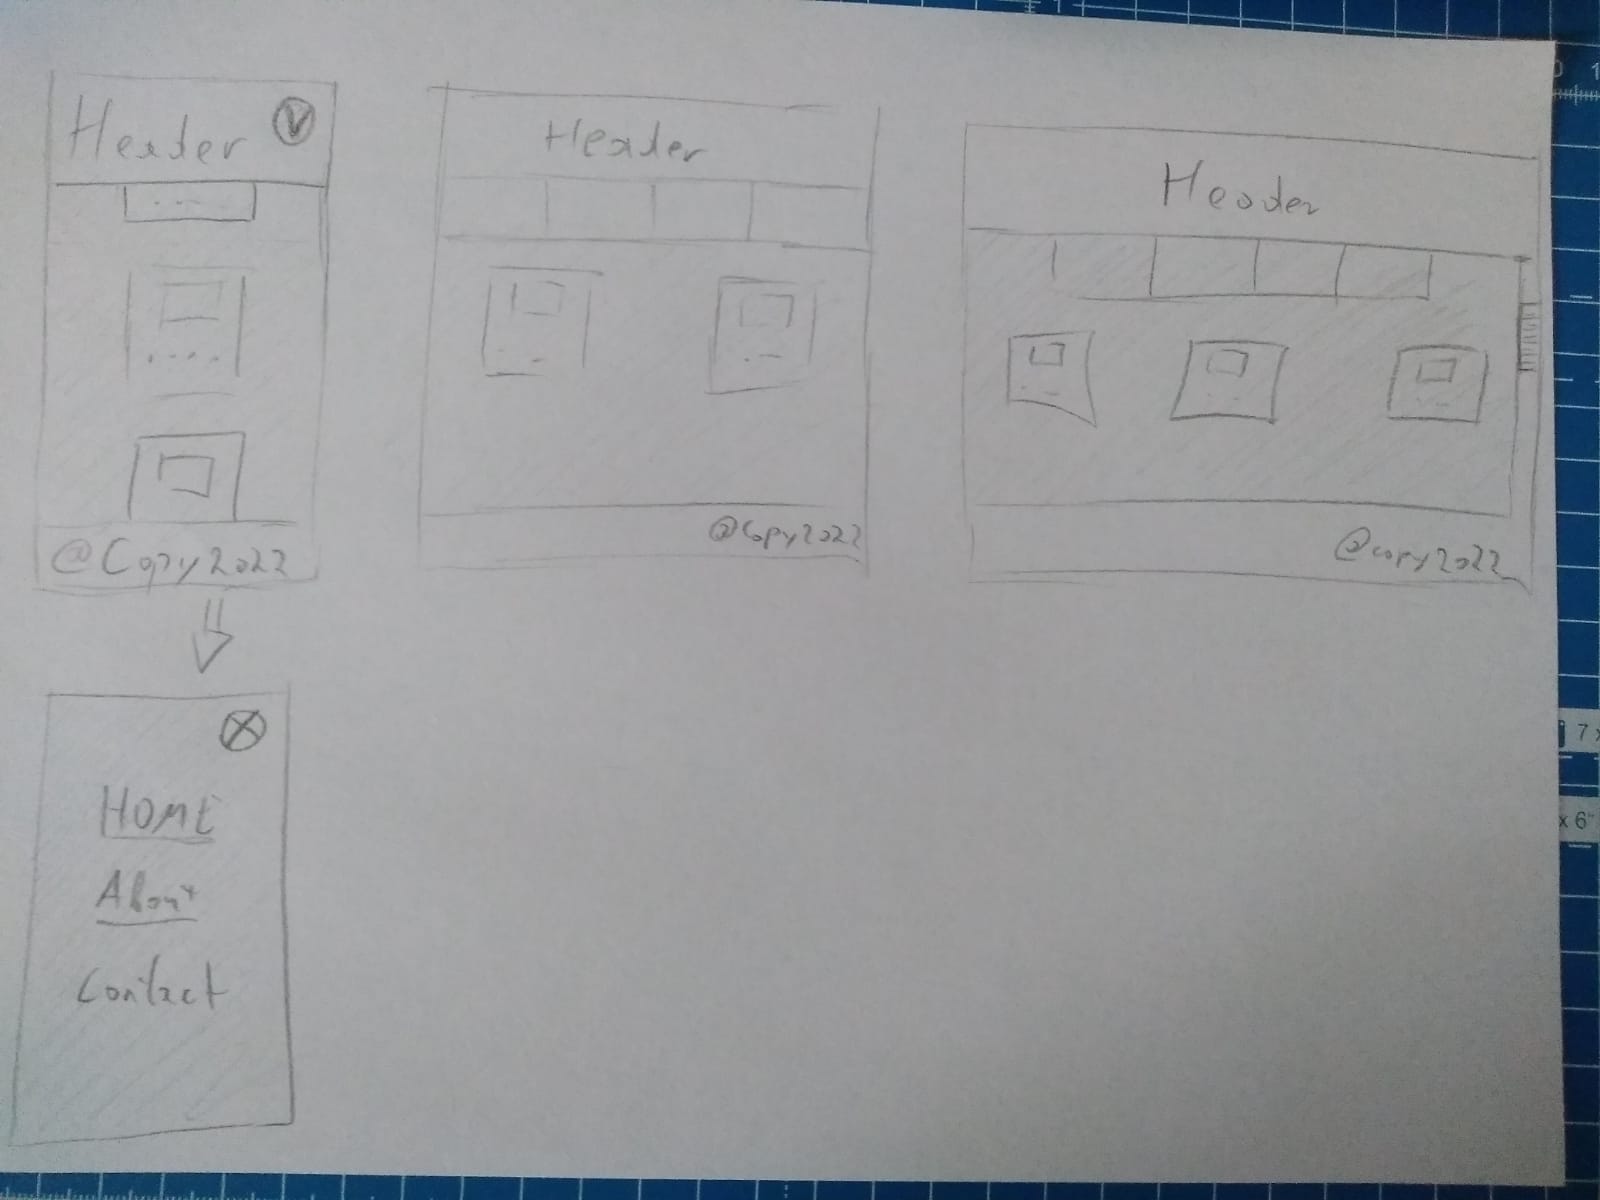 Header V
@Copy2022
X
HOME
About
Contact
Header
@Copy2022
Header
@copy2022
0 1
7 x
x 6"